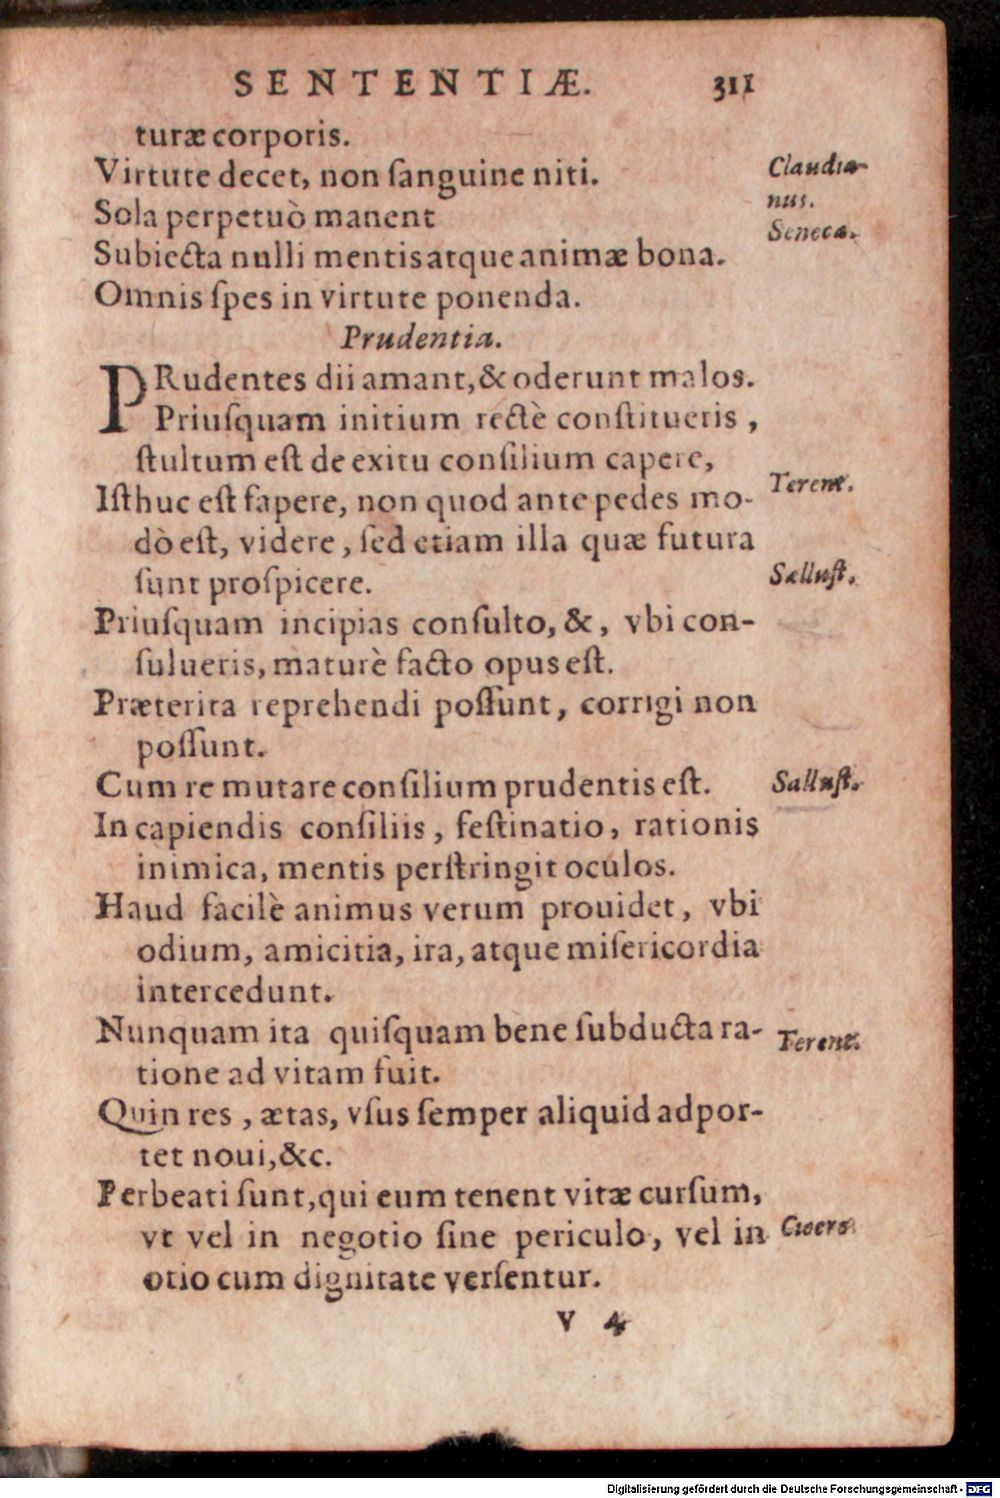 SENTENTIÆ. 311
turæ corporis.
Virtute decet, non ſanguine niti.
Claudia-
nus.
Sola perpetuò manent
Seneca.
Subiecta nulli mentis atque animæ bona.
Omnis ſpes in virtute ponenda.
Prudentia.
PRudentes dii amant, & oderunt malos.
Priuſquam initium rectè conſtitueris,
ſtultum eſt de exitu conſilium capere,
Iſthuc eſt ſapere, non quod ante pedes mo-
Terent.
dò eſt, videre, ſed etiam illa quæ futura
ſunt proſpicere.
Salluſt.
Priuſquam incipias conſulto, &, vbi con-
ſulueris, maturè facto opus eſt.
Præterita reprehendi poſſunt, corrigi non
poſſunt.
Cum re mutare conſilium prudentis eſt.
Salluſt.
In capiendis conſiliis, feſtinatio, rationis
inimica, mentis perſtringit oculos.
Haud facilè animus verum prouidet, vbi
odium, amicitia, ira, atque miſericordia
intercedunt.
Nunquam ita quiſquam bene ſubducta ra-
Terent.
tione ad vitam fuit.
Quin res, ætas, vſus ſemper aliquid adpor-
tet noui, &c.
Perbeati ſunt, qui eum tenent vitæ curſum,
vt vel in negotio ſine periculo, vel in
Cicero
otio cum dignitate verſentur.
V 4
Digitalisierung gefördert durch die Deutsche Forschungsgemeinschaft - DFG